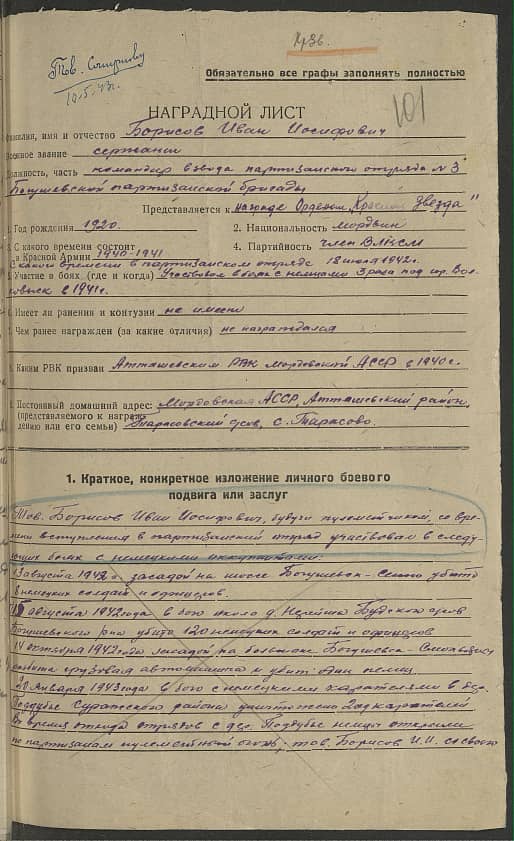 Тов. Смирнову
10.5.43г.
Обязательно все графы заполнять полностью
101
НАГРАДНОЙ ЛИСТ
Фамилия, имя и отчество Борисов Иван Иосифович
Военное звание сержант
Должность, часть командир взвода партизанского отряда N 3
Богушевской партизанской бригады
Представляется к награде Орденом "Красная Звезда"
1. Год рождения 1920. 2. Национальность мордвин
3. С какого времени состоит 4. Партийность член ВЛКСМ
в Красной Армии 1940-1941
С какого времени в партизанском отряде 18 июля 1942г.
Участие в боях (где и когда) Участвовал в боях с немцами 3 раза под гор. Вол-
ковыск в 1941г.
6. Имеет ли ранения и контузии не имеет
7. Чем ранее награжден (за какие отличия) не награждался
8. Каким РВК призван Атяшевским РВК Мордовской АССР в 1940г.
9. Постоянный домашний адрес: Мордовская АССР, Атяшевский район,
(представляемого к награж-
дению или его семьи) Тарасовский с/сов, с. Тарасово.
1. Краткое, конкретное изложение личного боевого
подвига или заслуг
Тов. Борисов Иван Иосифович, будучи пулеметчиком, со вре-
мени вступления в партизанский отряд участвовал в следу-
ющих боях с немецкими оккупантами:
13 августа 1942г. засадой на шоссе Богушевск - Сенно убито
8 немецких солдат и офицеров.
августа 1942 года в бою около д. Будского с/сов
Богушевского р-на убито 120 немецких солдат и офицеров
14 октября 1942 года засадой на большаке Богушевск-Смольянцы
разбита грузовая автомашина и убит один немец
20 января 1943 года в бою с немецкими карателями в дер.
Поддубье Суражского района уничтожено карателей
Во время отхода отрядов с дер. Поддубье немцы открыли
по партизанам пулеметный огонь, тов. Борисов И.И. со своего